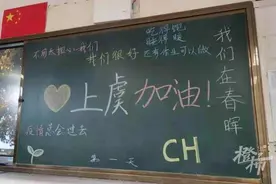 不用太担心我们
我们很好
吃得饱
睡得暖
还有作业可以做
我们在春晖
上虞加油!
疫情总会过去
第一天
CH
橙柿